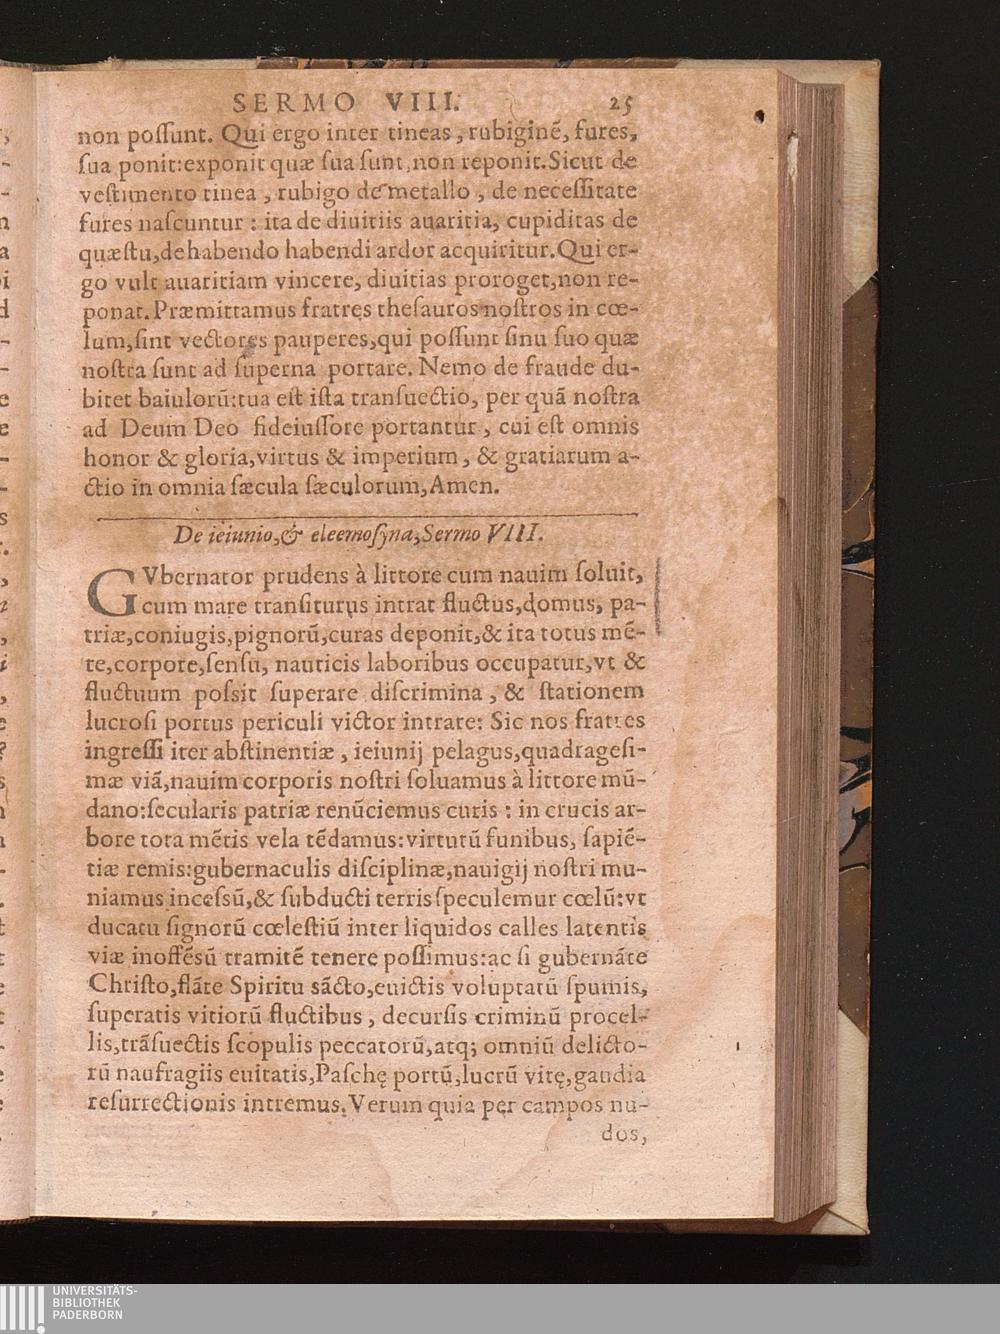 SERMO VIII. 25
non poſſunt. Qui ergo inter tineas, rubiginē, fures,
ſua ponit:exponit quæ ſua ſunt, non reponit. Sicut de
veſtimento tinea, rubigo de metallo, de neceſſitate
fures naſcuntur : ita de diuitiis auaritia, cupiditas de
quæſtu, de habendo habendi ardor acquiritur. Qui er-
go vult auaritiam vincere, diuitias proroget, non re-
ponat. Præmittamus fratres theſauros noſtros in cœ-
lum, ſint vectores pauperes, qui poſſunt ſinu ſuo quæ
noſtra ſunt ad ſuperna portare. Nemo de fraude du-
bitet baiulorū: tua eſt iſta tranſuectio, per quā noſtra
ad Deum Deo fideiuſſore portantur, cui eſt omnis
honor & gloria, virtus & imperium, & gratiarum a-
ctio in omnia ſæcula ſæculorum, Amen.
De ieiunio, & eleemoſyna, Sermo VIII.
GVbernator prudens à littore cum nauim ſoluit,
cum mare tranſiturus intrat fluctus, domus, pa-
triæ, coniugis, pignorū, curas deponit, & ita totus mē-
te, corpore, ſenſu, nauticis laboribus occupatur, vt &
fluctuum poſsit ſuperare diſcrimina, & ſtationem
lucroſi portus periculi victor intrare: Sic nos fratres
ingreſſi iter abſtinentiæ, ieiunij pelagus, quadrageſi-
mæ viā, nauim corporis noſtri ſoluamus à littore mū-
dano: ſecularis patriæ renūciemus curis : in crucis ar-
bore tota mētis vela tēdamus: virtutū funibus, ſapiē-
tiæ remis: gubernaculis diſciplinæ, nauigij noſtri mu-
niamus inceſsū, & ſubducti terris ſpeculemur cœlū: vt
ducatu ſignorū cœleſtiū inter liquidos calles latentis
viæ inoffēsū tramitē tenere poſſimus: ac ſi gubernāte
Chriſto, flāte Spiritu sācto, euictis voluptatū ſpumis,
ſuperatis vitiorū fluctibus, decurſis criminū procel-
lis, trāſuectis ſcopulis peccatorū, atq; omniū delicto-
rū naufragiis euitatis, Paſchę portū, lucrū vitę, gaudia
reſurrectionis intremus. Verum quia per campos nu-
dos,
UNIVERSITÄTS-
BIBLIOTHEK
PADERBORN